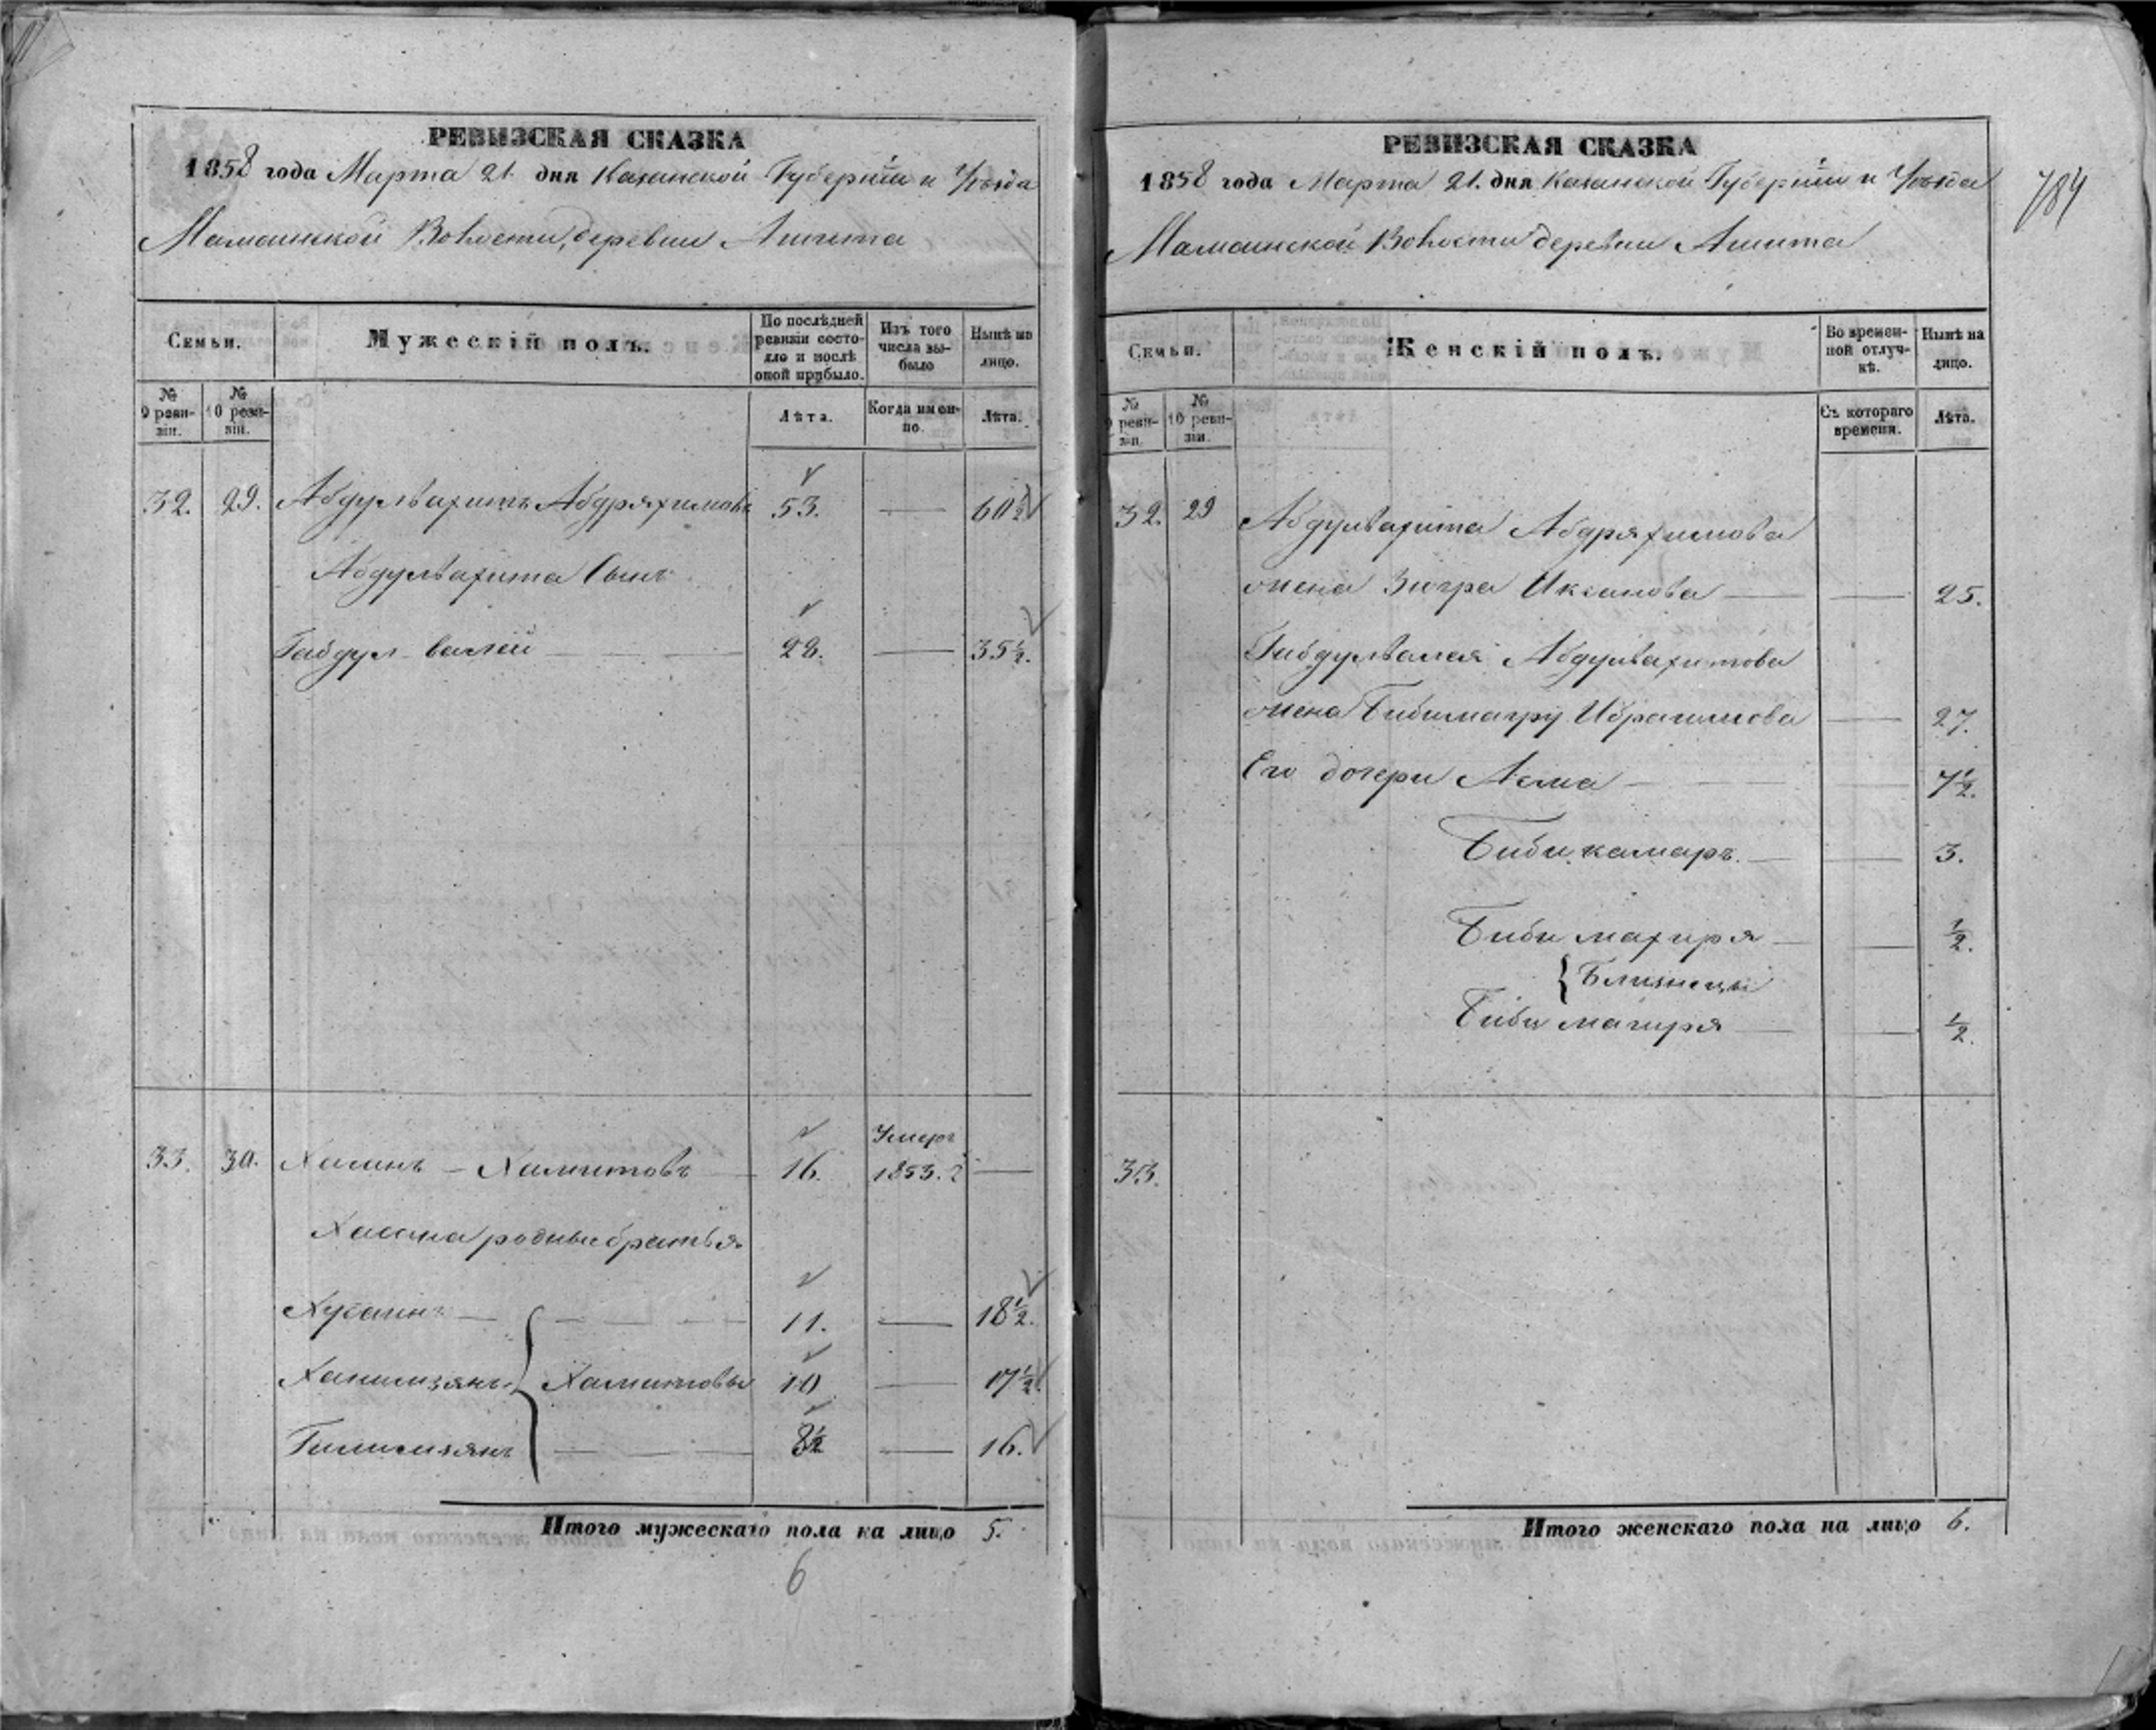 РЕВИЗСКАЯ СКАЗКА
1858 года Марта 21 дня Казанской Губернiи и Уѣзда
Мамашской Волости, деревни Ашита
Семьи.
Мужескiй полъ.
По послѣдней ревизiи состояло и послѣ оной прибыло.
Изъ того числа выбыло
Нынѣ на лицо.
№ 9 ревизiи.
№ 10 ревизiи.
Лѣта.
Когда именно.
Лѣта.
32. 29. Абдулвахитъ Абдряхимовъ 53. — 60½
Абдулвахита Сынъ
Габдул-валей — 28. — 35½.
33. 30. Хасанъ — Хамитовъ 16. Умеръ 1853. —
Хасана родные братья
Хусаинъ — 11. — 18½.
Ханимзянъ Хамитовы 10 — 17½.
Гилимзянъ — 8½ — 16.
Итого мужескаго пола на лицо 5.
6
РЕВИЗСКАЯ СКАЗКА
1858 года Марта 21. дня Казанской Губернiи и Уѣзда
784
Мамашской Волости деревни Ашита
Семьи.
Женскiй полъ.
Во временной отлучкѣ.
Нынѣ на лицо.
№ 9 ревизiи.
№ 10 ревизiи.
Съ котораго времени.
Лѣта.
32. 29 Абдулвахита Абдряхимова
жена Зюгра Иксанова — — 25.
Габдулвалея Абдулвахитова
жена Бибимагру Ибрагимова — 27.
Его дочери Асма — — 7½.
Биби камаръ. — — 3.
Биби махиря — — ½.
{ Близнецы
Биби магиря — — ½.
33.
Итого женскаго пола на лицо 6.